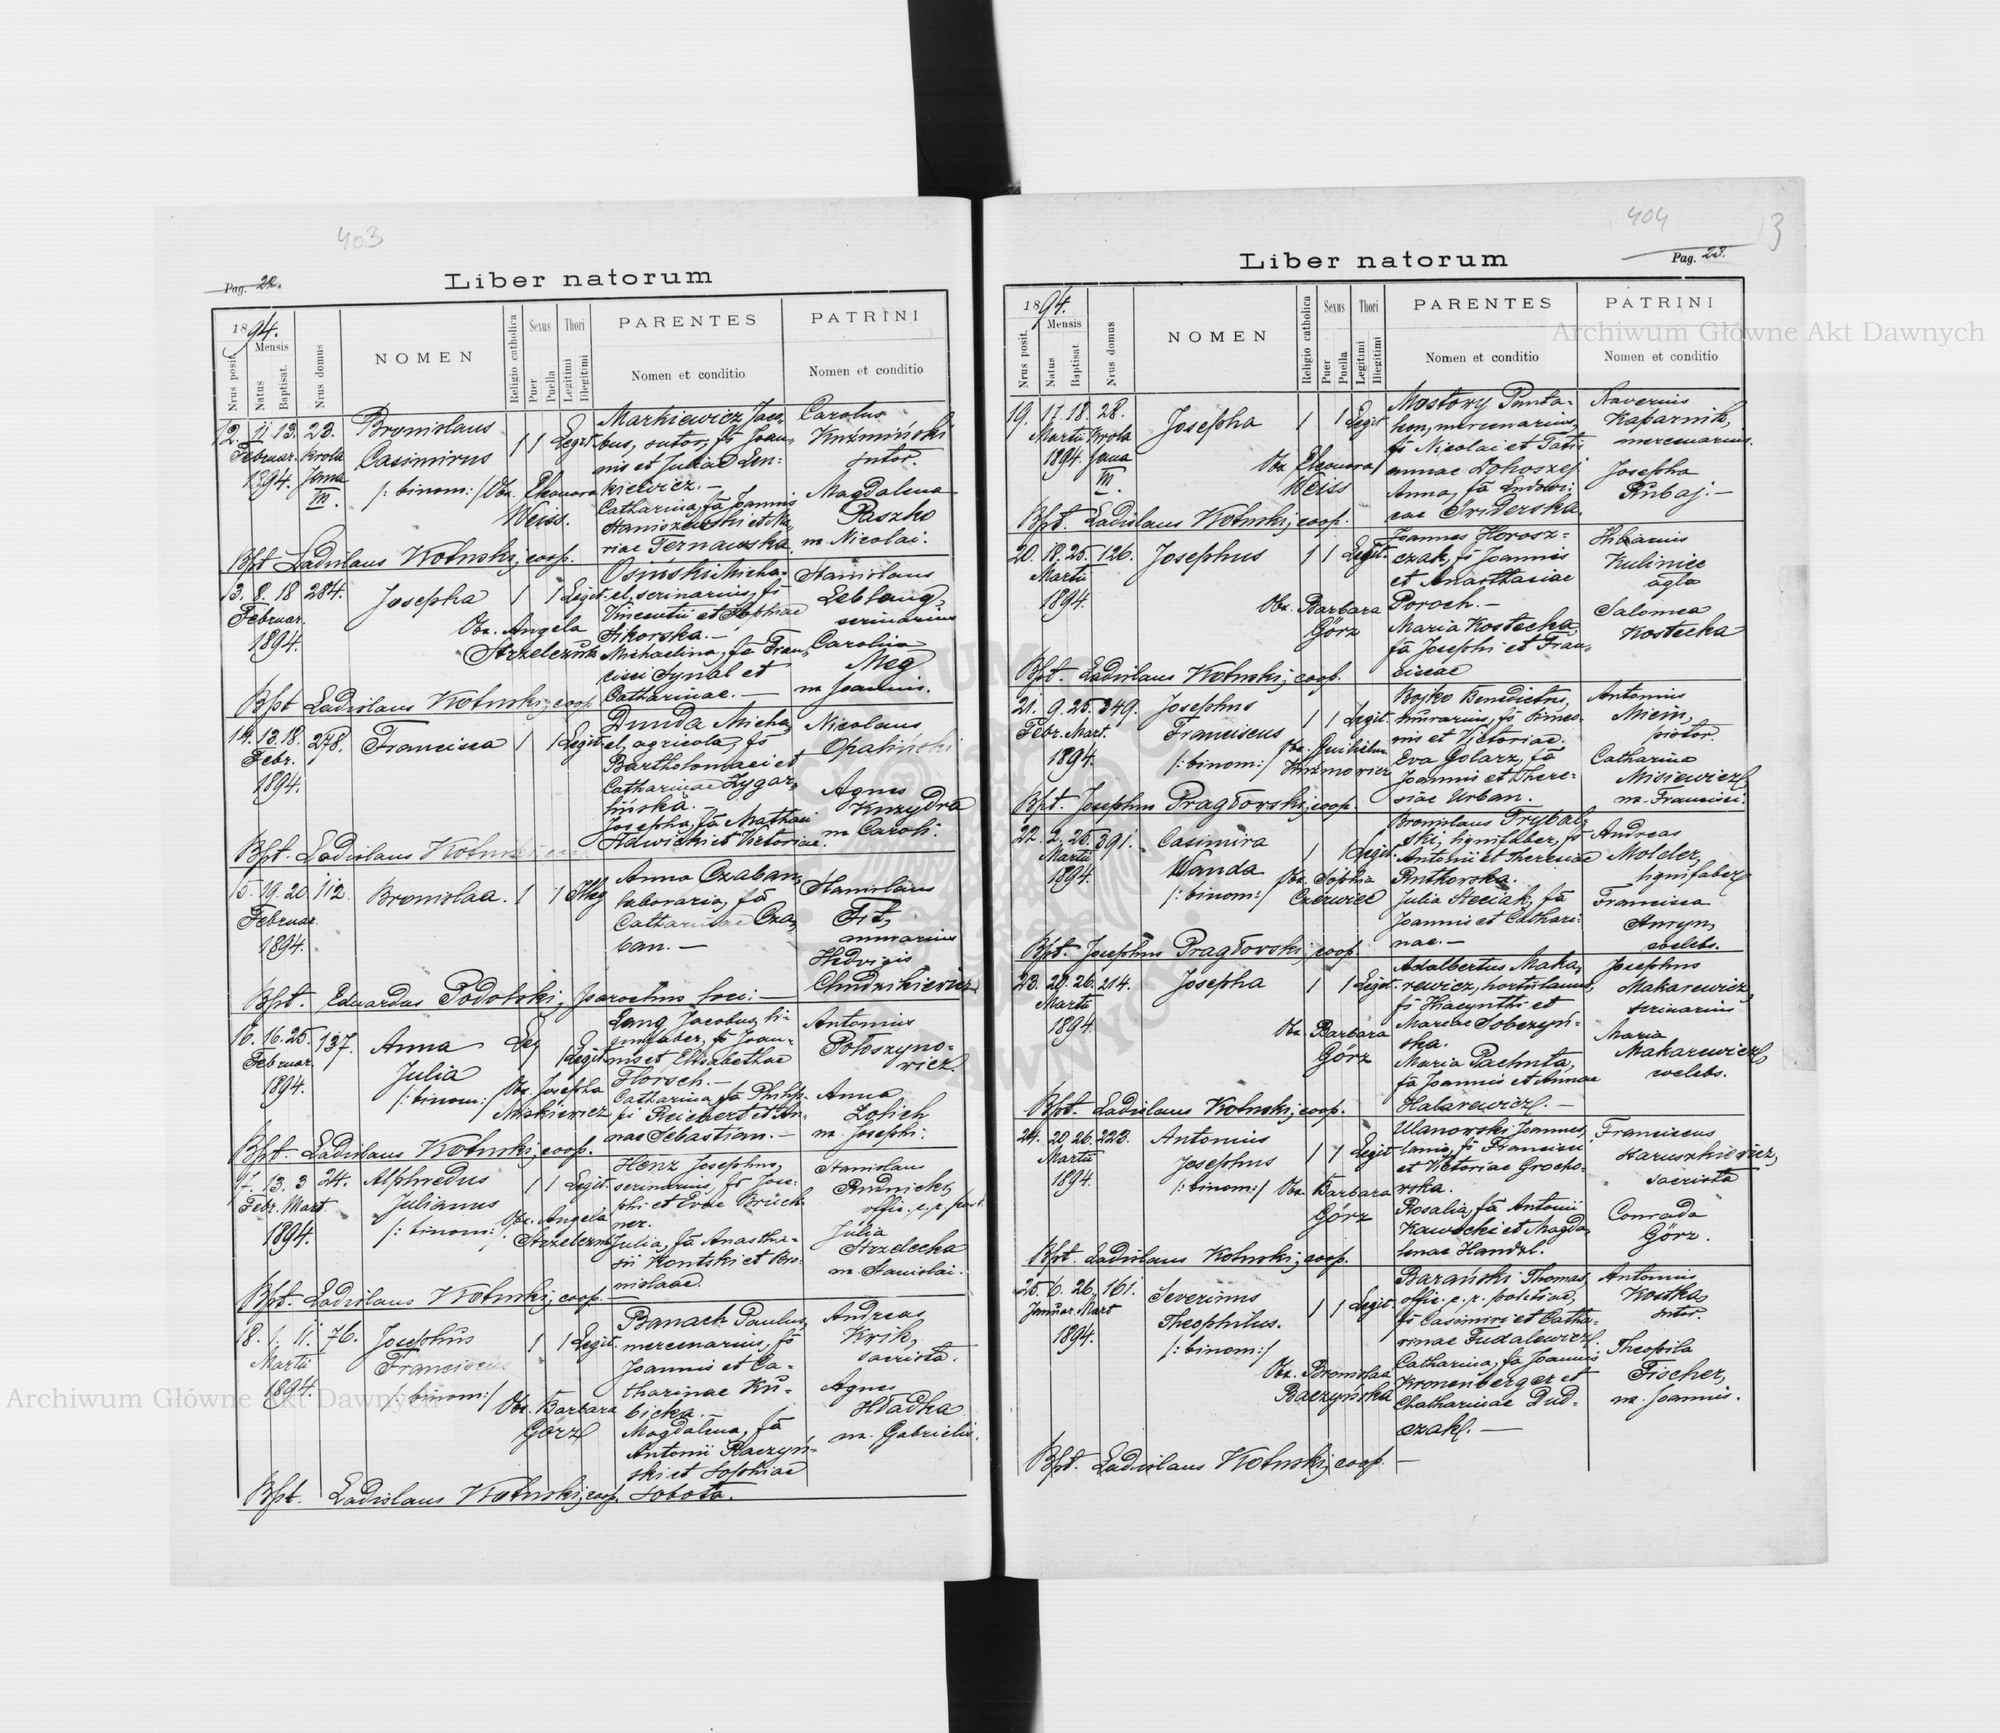 403
Pag. 22.
Liber natorum
1894.
Mensis
Nrus posit.
Natus
Baptisat.
Nrus domus
NOMEN
Religio catholica
Sexus
Puer
Puella
Thori
Legitimi
Illegitimi
PARENTES
Nomen et conditio
PATRINI
Nomen et conditio
12. 11. 13. 23.
Februar. Krola
1894. Jana
III.
Bronislaus
Casimirus
/: binom: / Obx. Eleonora
Weiss.
1 1 Legit.
Markiewicz Jaco-
bus, sutor, fs Joan-
nis et Juliae Len-
kiewicz. -
Catharina, fa Joannis
Staniszewski et Ma-
riae Ternawska.
Carolus
Kuźmiński
sutor.
Magdalena
Paszko
m. Nicolai.
Bpt. Ladislaus Kotuski, coop.
13. 8. 18 284.
Februar.
1894.
Josepha
Obx. Angela
Strzelczuk
1 1 Legit.
Osinski Micha-
el, serinarius, fs
Vincentii et Sophiae
Sikorska. -
Michaelina, fa Fran-
cisci Synal et
Catharinae. -
Stanislaus
Leblang,
serinarius
Carolina
Meg
m. Joannis.
Bpt Ladislaus Kotuski, coop
14. 13. 18. 278.
Febr.
1894.
Francisca
1 1 Legit.
Dunda Micha-
el, agricola, fs
Bartholomaei et
Catharinae Zygar-
lińska. -
Josepha, fa Mathaei
Sidwicki et Victoriae.
Nicolaus
Opaliński
Agnes
Knzydra
m Caroli.
Bpt. Ladislaus Kotuski
15. 19. 20. 112.
Februar.
1894.
Bronislaa.
1 1 Illeg
Anna Czaban,
laboraria, fa
Catharinae Cza-
ban. -
Stanislaus
Fit,
murarius
Hedvigis
Chudzikiewicz
Bpt. Eduardus Podolski, parochus loci: -
16. 16. 25. 137.
Februar.
1894.
Anna
Julia
/: binom: / Obx. Josepha
Makiewicz
1 Legit.
Lang Jacobus, li-
gnifaber, fs Joan-
nis et Elisabethae
Horsch. -
Catharina, fa Philip-
pi Reichert et An-
nae Sebastian. -
Antonius
Potoszyno-
wicz.
Anna
Lotich
m. Josephi.
Bpt. Ladislaus Kotuski, coop.
17. 13. 3 24.
Febr. Mart
1894.
Alphredus
Julianus
/: binom: / Obx. Angela
Strzelczuk
1 1 Legit.
Henz Josephus,
serinarius, fs Jose-
phi et Evae Brück-
ner.
Julia, fa Anastha-
sii Kontski et Bro-
nislaae.
Stanislaus
Rudnicki,
offic. c. r. post.
Julia
Strzelecka
m. Stanislai.
Bpt. Ladislaus Kotuski, coop. -
18. 1. 11. 76.
Martii
1894.
Josephus
Franciscus
/: binom: / Obx. Barbara
Görz
1 1 Legit.
Banach Paulus,
mercenarius, fs
Joannis et Ca-
tharinae Ku-
bicka. -
Magdalena, fa
Antonii Raczyń-
ski et Sophiae
Sobota.
Andreas
Krik,
sacrista.
Agnes
Hładka
m. Gabrielis.
Bpt. Ladislaus Kotuski, coop.
404
13
Pag. 23.
Liber natorum
1894.
Mensis
Nrus posit.
Natus
Baptisat.
Nrus domus
NOMEN
Religio catholica
Sexus
Puer
Puella
Thori
Legitimi
Illegitimi
PARENTES
Nomen et conditio
PATRINI
Nomen et conditio
19. 17. 18. 28.
Martii Krola
1894. Jana
III.
Josepha
Obx. Eleonora
Weiss
1 1 Legit
Mostowy Panta-
leon, mercenarius,
fs Nicolai et Tati-
annae Dohoszej
Anna, fa Ludovi-
cae Sviderska.
Xaverius
Kaparnik,
mercenarius.
Josepha
Rubaj. -
Bpt. Ladislaus Kotuski, coop.
20. 18. 25. 126.
Martii
1894.
Josephus
Obx. Barbara
Görz
1 1 Legit.
Joannes Horosz-
czak, fs Joannis
et Anasthasiae
Poroch. -
Maria Kostecka,
fa Josephi et Fran-
ciscae
Hilarius
Kulinicz
agla
Salomea
Kostecka
Bpt. Ladislaus Kotuski, coop.
21. 9. 25. 349.
Febr. Mart.
1894.
Josephus
Franciscus
/: binom: /
Kuźmowicz
1 1 Legit.
Bojko Benedictus,
murarius, fs Simeo-
nis et Victoriae.
Eva Golarz, fa
Joannis et There-
siae Urban.
Antonius
Micin,
pistor.
Catharina
Misiewicz
m. Francisci.
Bpt. Josephus Pragłowski, coop.
22. 2. 25. 391.
Martii
1894.
Casimira
Wanda
/: binom: / Obx. Sophia
Czerwiec
1 1 Legit.
Bronislaus Trybal-
ski, lignifaber, fs
Antonii et Theresiae
Rutkowska.
Julia Steciak, fa
Joannis et Cathari-
nae. -
Andreas
Molder,
lignifaber
Francisca
Amryn,
coelebs.
Bpt. Josephus Pragłowski, coop.
23. 20. 26. 214.
Martii
1894.
Josepha
Obx. Barbara
Görz
1 1 Legit.
Adalbertus Maka-
rewicz, hortulanus,
fs Hiacynthi et
Mariae Sobczyń-
ska.
Maria Pachuta,
fa Joannis et Annae
Halarewicz. -
Josephus
Makarewicz,
serinarius
Maria
Makarewicz,
coelebs.
Bpt. Ladislaus Kotuski, coop.
24. 20. 26. 223.
Martii
1894.
Antonius
Josephus
/: binom: / Obx. Barbara
Görz
1 1 Legit
Ulanowski Joannes,
lanio, fs Francisci
et Victoriae Grocho-
wska.
Rosalia, fa Antonii
Kawecki et Magda-
lenae Handzl.
Franciscus
Haruszkiewicz,
sacrista
Conrada
Görz.
Bpt. Ladislaus Kotuski, coop.
25. 6. 26. 161.
Januar. Mart
1894.
Severinus
Theophilus.
/: binom: /
Obx. Bronislaa
Baczyńska
1 1 Legit.
Barański Thomas,
offic. c. r. politiae,
fs Casimiri et Catha-
rinae Fudalewicz.
Catharina, fa Joannis
Kronenberger et
Chatharinae Dud-
czak. -
Antonius
Kostka,
sutor.
Theophila
Fischer,
m. Joannis.
Bpt. Ladislaus Kotuski, coop. -
Archiwum Główne Akt Dawnych
Archiwum Główne Akt Dawnych